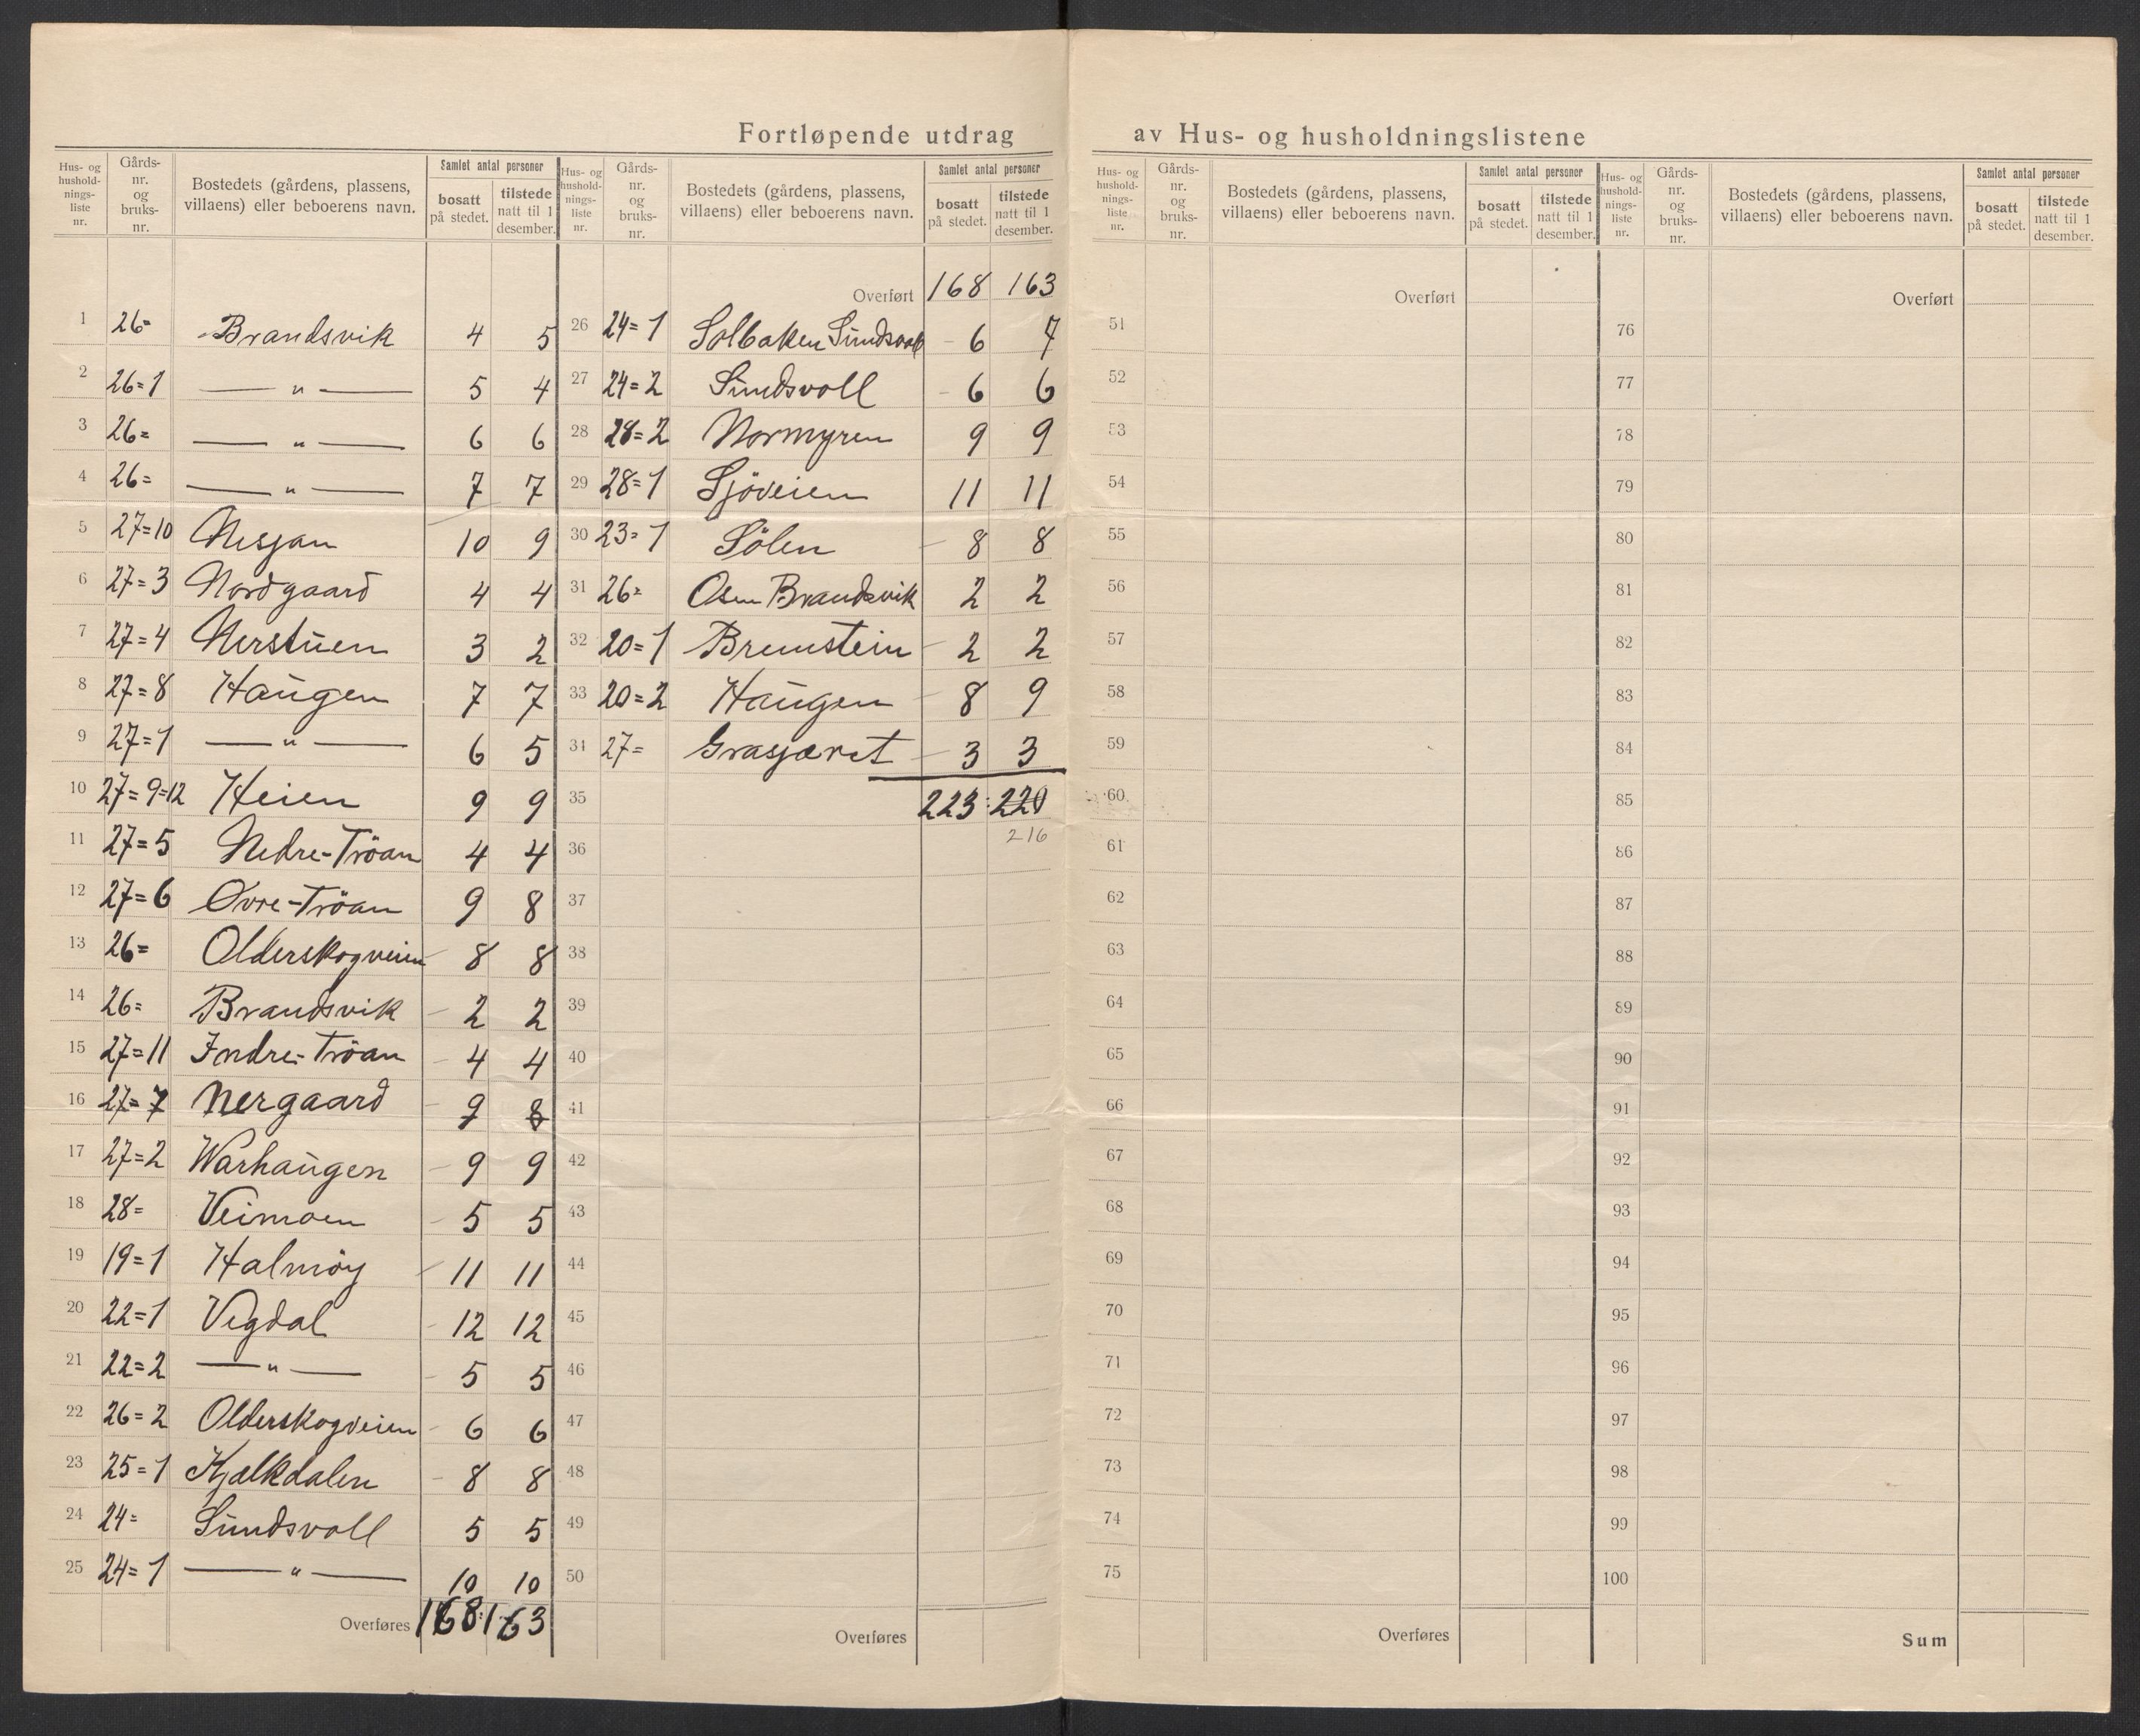 Fortløpende utdrag av Hus- og husholdningslistene
Hus- og hushold-nings-liste nr. Gårds-nr. og bruks-nr. Bostedets (gårdens, plassens, villaens) eller beboerens navn. Samlet antal personer bosatt på stedet. tilstede natt til 1 desember.
1 26= Brandsvik 4 5
2 26=1 — " — 5 4
3 26= — " — 6 6
4 26= — " — 7 7
5 27=10 Nesjan 10 9
6 27=3 Nordgaard 4 4
7 27=4 Nerstuen 3 2
8 27=8 Haugen 7 7
9 27=1 — " — 6 5
10 27=9=12 Heien 9 9
11 27=5 Nedre-Tröan 4 4
12 27=6 Øvre-Tröan 9 8
13 26= Olderskogveien 8 8
14 26= Brandsvik 2 2
15 27=11 Indre-Tröan 4 4
16 27=7 Nergaard 9 8
17 27=2 Warhaugen 9 9
18 28= Veimoen 5 5
19 19=1 Halmöy 11 11
20 22=1 Vegdal 12 12
21 22=2 — " — 5 5
22 26=2 Olderskogveien 6 6
23 25=1 Kjælkdalen 8 8
24 24= Sundsvoll 5 5
25 24=1 — " — 10 10
Overføres 168:163
Hus- og hushold-nings-liste nr. Gårds-nr. og bruks-nr. Bostedets (gårdens, plassens, villaens) eller beboerens navn. Samlet antal personer bosatt på stedet. tilstede natt til 1 desember.
Overført 168 163
26 24=1 Solbaken Sundsvoll 6 7
27 24=2 Sundsvoll 6 6
28 28=2 Normyren 9 9
29 28=1 Sjöveien 11 11
30 23=1 Sölen 8 8
31 26= Osen Brandsvik 2 2
32 20=1 Bremstein 2 2
33 20=2 Haugen 8 9
34 27= Grasjæret 3 3
35 223:220
36 216
37
38
39
40
41
42
43
44
45
46
47
48
49
50
Overføres
Hus- og hushold-nings-liste nr. Gårds-nr. og bruks-nr. Bostedets (gårdens, plassens, villaens) eller beboerens navn. Samlet antal personer bosatt på stedet. tilstede natt til 1 desember.
Overført
51
52
53
54
55
56
57
58
59
60
61
62
63
64
65
66
67
68
69
70
71
72
73
74
75
Overføres
Hus- og hushold-nings-liste nr. Gårds-nr. og bruks-nr. Bostedets (gårdens, plassens, villaens) eller beboerens navn. Samlet antal personer bosatt på stedet. tilstede natt til 1 desember.
Overført
76
77
78
79
80
81
82
83
84
85
86
87
88
89
90
91
92
93
94
95
96
97
98
99
100
Sum